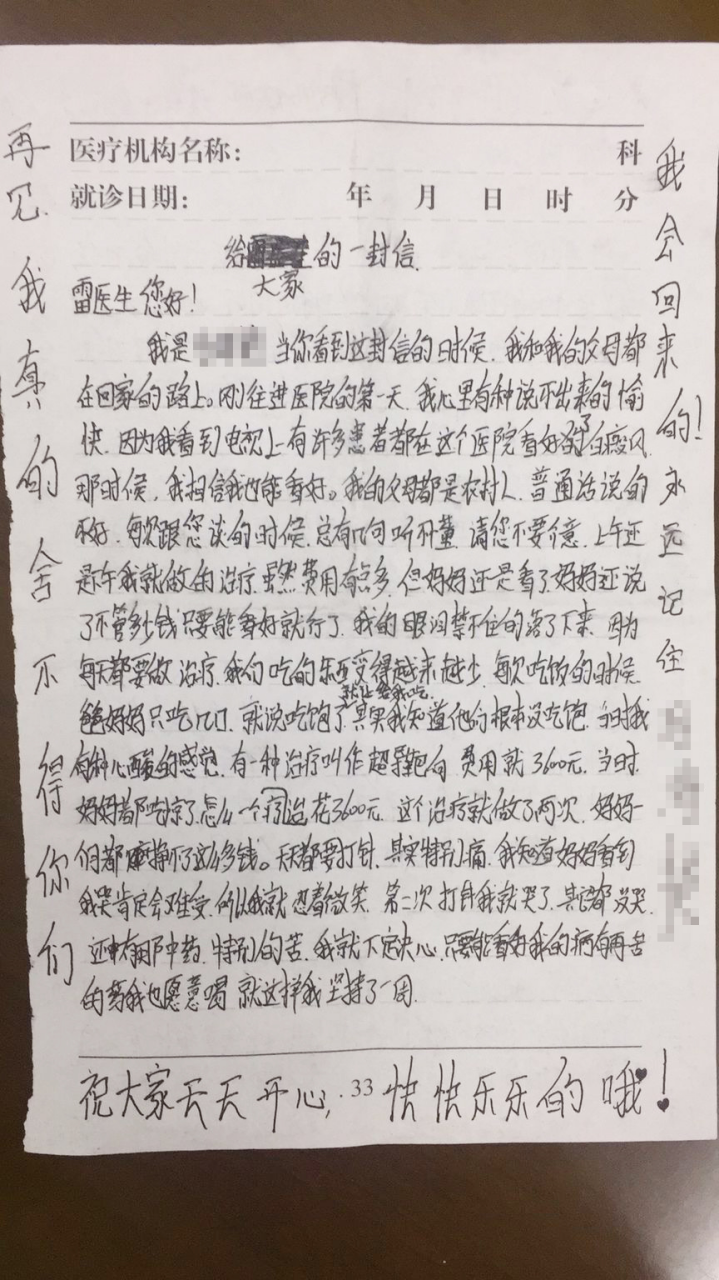 医疗机构名称： 科
就诊日期： 年 月 日 时 分
给 的一封信.
大家
雷医生您好！
我是 当你看到这封信的时候.我和我的父母都
在回家的路上。刚住进医院的第一天.我心里有种说不出来的愉
快.因为我看到电视上有许多患者都在这个医院看好了白癜风
那时候，我相信我也能看好。我的父母都是农村人.普通话说的
不好.每次跟您谈的时候.总有几句听不董.请您不要介意.上午还
是午我就做的治疗.虽然费用有点多.但妈妈还是看了.妈妈还说
了不管多少钱只要能看好就行了.我的眼泪禁不住的落了下来.因为
每天都要做治疗.我们吃的东西变得越来越少.每次吃饭的时候
就让给我吃.
爸妈妈只吃几口.就说吃饱了其实我知道他们根本没吃饱.当时我
有种心酸的感觉.有一种治疗叫作超导靶向 费用就3600元.当时.
妈妈都吃惊了.怎么一个疗治花3600元.这个治疗就做了两次.妈妈一
们都 挣不了这么多钱。天天都要打针.其实特别痛.我知道妈妈看到
我哭肯定会难受.所以我就忍着微笑.第二次打针我就哭了.其它都没哭.
还有那中药.特别的苦.我就下定决心.只要能看好我的病有再苦
的药我也愿意喝 就这样我坚持了一周.
祝大家天天开心，快快乐乐的哦♥！
·33
再见.我真的舍不得你们
我会回来的！永远记住